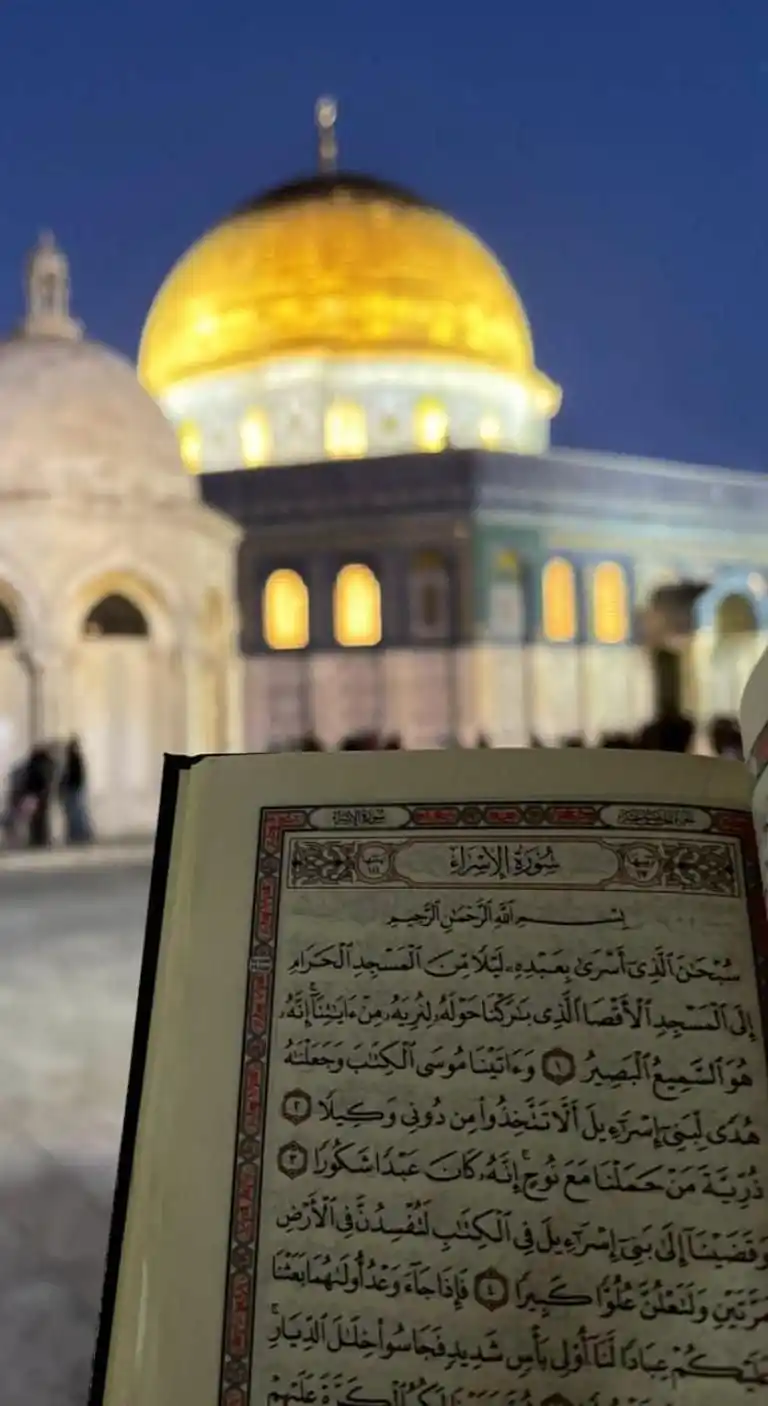 سُورَةُ الإِسۡرَاءِ
سُورَةُ الإِسۡرَاءِ
بِسۡمِ ٱللَّهِ ٱلرَّحۡمَٰنِ ٱلرَّحِيمِ
سُبۡحَٰنَ ٱلَّذِيٓ أَسۡرَىٰ بِعَبۡدِهِۦ لَيۡلٗا مِّنَ ٱلۡمَسۡجِدِ ٱلۡحَرَامِ
إِلَى ٱلۡمَسۡجِدِ ٱلۡأَقۡصَا ٱلَّذِي بَٰرَكۡنَا حَوۡلَهُۥ لِنُرِيَهُۥ مِنۡ ءَايَٰتِنَآۚ إِنَّهُۥ
هُوَ ٱلسَّمِيعُ ٱلۡبَصِيرُ ١ وَءَاتَيۡنَا مُوسَى ٱلۡكِتَٰبَ وَجَعَلۡنَٰهُ
هُدٗى لِّبَنِيٓ إِسۡرَٰٓءِيلَ أَلَّا تَتَّخِذُواْ مِن دُونِي وَكِيلٗا ٢
ذُرِّيَّةَ مَنۡ حَمَلۡنَا مَعَ نُوحٍۚ إِنَّهُۥ كَانَ عَبۡدٗا شَكُورٗا ٣
وَقَضَيۡنَآ إِلَىٰ بَنِيٓ إِسۡرَٰٓءِيلَ فِي ٱلۡكِتَٰبِ لَتُفۡسِدُنَّ فِي ٱلۡأَرۡضِ
مَرَّتَيۡنِ وَلَتَعۡلُنَّ عُلُوّٗا كَبِيرٗا ٤ فَإِذَا جَآءَ وَعۡدُ أُولَىٰهُمَا بَعَثۡنَا
عَلَيۡكُمۡ عِبَادٗا لَّنَآ أُوْلِي بَأۡسٖ شَدِيدٖ فَجَاسُواْ خِلَٰلَ ٱلدِّيَارِۚ
لَكُمُ ٱلۡكَرَّةَ عَلَيۡهِمۡ